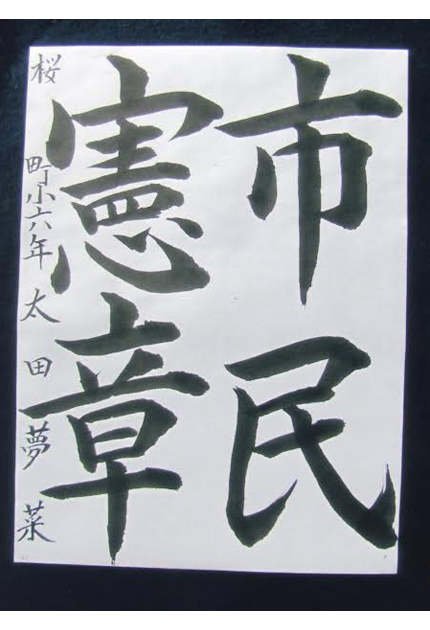 市民
憲章
桜町小六年 太田夢菜